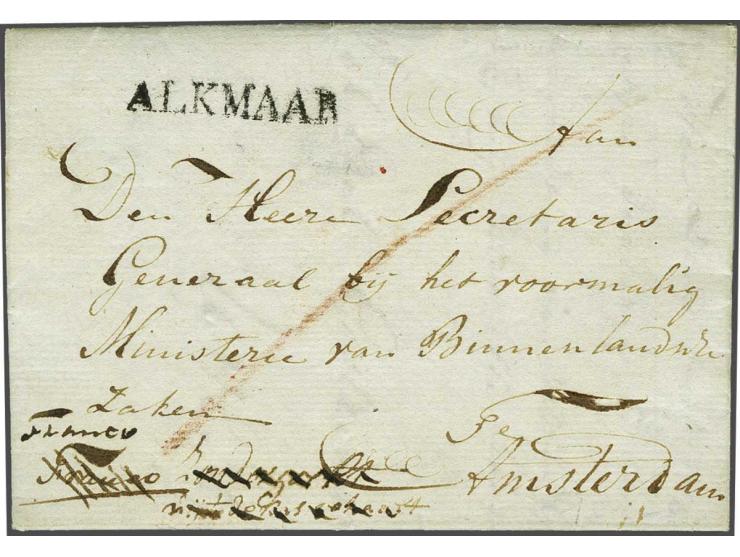 ALKMAAR
Aan
Den Heere Secretaris
Generaal bij het voormalig
Ministerie van Binnenlandsche
Zaken
Franco
Te
Franco
Amsterdam